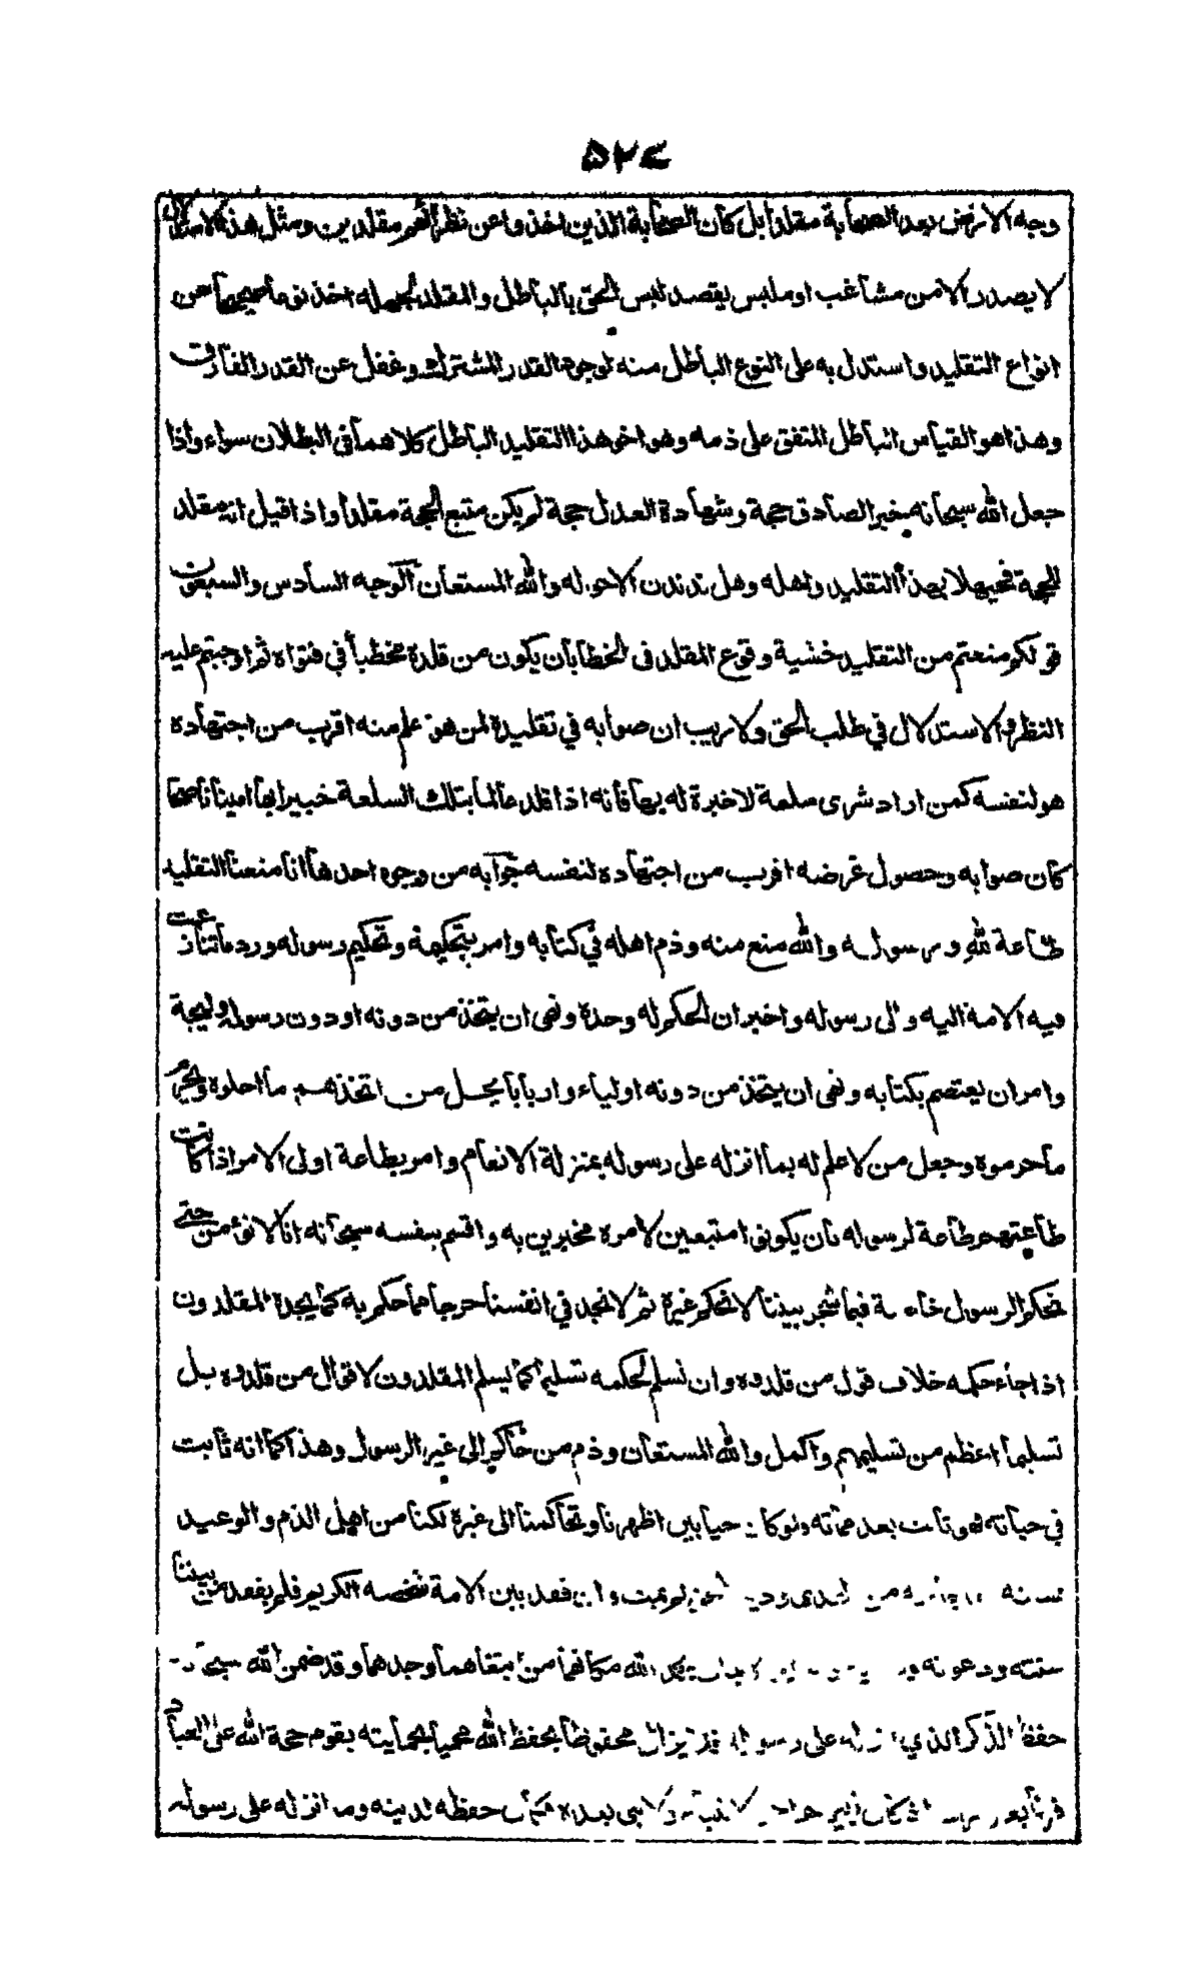 ٥٢٤
وجه الارض بعد الصحابة مقلدا بل كان الصحابة الذين اخذوا عن نظرائهم مقلدين ومثل هذا الاستدلال
لا يصدر الا من مشاغب او ملبس يقصد لبس الحق بالباطل والمقلد لجهله اخذ نوعا صحيحا من
انواع التقليد واستدل به على النوع الباطل منه لوجود القدر المشترك وغفل عن القدر الفارق
وهذا هو القياس الباطل المتفق على ذمه وهو اخو هذا التقليد الباطل كلاهما في البطلان سواء واذا
جعل الله سبحانه خبر الصادق حجة وشهادة العدل حجة لم يكن متبع الحجة مقلدا واذا قيل انه مقلد
للحجة فحيهلا بهذا التقليد واهله وهل ندندن الا حوله والله المستعان الوجه السادس والسبعون
قولكم منعتم من التقليد خشية وقوع المقلد في الخطا بان يكون من قلده مخطيا في فتواه ثم اوجبتم عليه
النظر والاستدلال في طلب الحق ولا ريب ان صوابه في تقليده لمن هو اعلم منه اقرب من اجتهاده
هو لنفسه كمن اراد شرى سلعة لا خبرة له بها فانه اذا قلد عالما بتلك السلعة خبيرا بها امينا ناصحا
كان صوابه وحصول غرضه اقرب من اجتهاده لنفسه جوابه من وجوه احدها انا منعنا التقليد
طاعة لله ورسوله والله منع منه وذم اهله في كتابه وامر بتحكيمه وتحكيم رسوله ورد ما تنازعت
فيه الامة اليه والى رسوله واخبر ان الحكم له وحده ونهى ان يتخذ من دونه او دون رسوله وليجة
وامر ان يعتصم بكتابه ونهى ان يتخذ من دونه اولياء واربابا يحل من اتخذهم ما احلوه ويحرم
ما حرموه وجعل من لا علم له بما انزله على رسوله بمنزلة الانعام وامر بطاعة اولى الامر اذا كانت
طاعتهم طاعة لرسوله بان يكونوا متبعين لامره مخبرين به واقسم بنفسه سبحانه انا لا نؤمن حتى
نحكم الرسول خاصة فيما شجر بيننا لا نحكم غيره ثم لا نجد في انفسنا حرجا مما حكم به كما يجده المقلدون
اذا جاء حكمه خلاف قول من قلدوه وان نسلم لحكمه تسليما كما يسلم المقلدون لاقوال من قلدوه بل
تسليما اعظم من تسليمهم واكمل والله المستعان وذم من حاكم الى غير الرسول وهذا كما انه ثابت
في حياته فهو ثابت بعد مماته ولو كان حيا بين اظهرنا وتحاكمنا الى غيره لكنا من اهل الذم والوعيد
من الهدى ودين الحق لم يمت وان فقد بين الامة شخصه الكريم فلم يفقد من بيننا
سنته ودعوته الله مكانهما من ابتغاهما وجدهما وقد ضمن الله سبحانه
حفظ الذكر الذي انزله على رسوله فلا يزال محفوظا بحفظ الله محميا بحمايته يقوم حجة الله على العباد
نبي بعده فكان حفظه لدينه وما انزله على رسوله